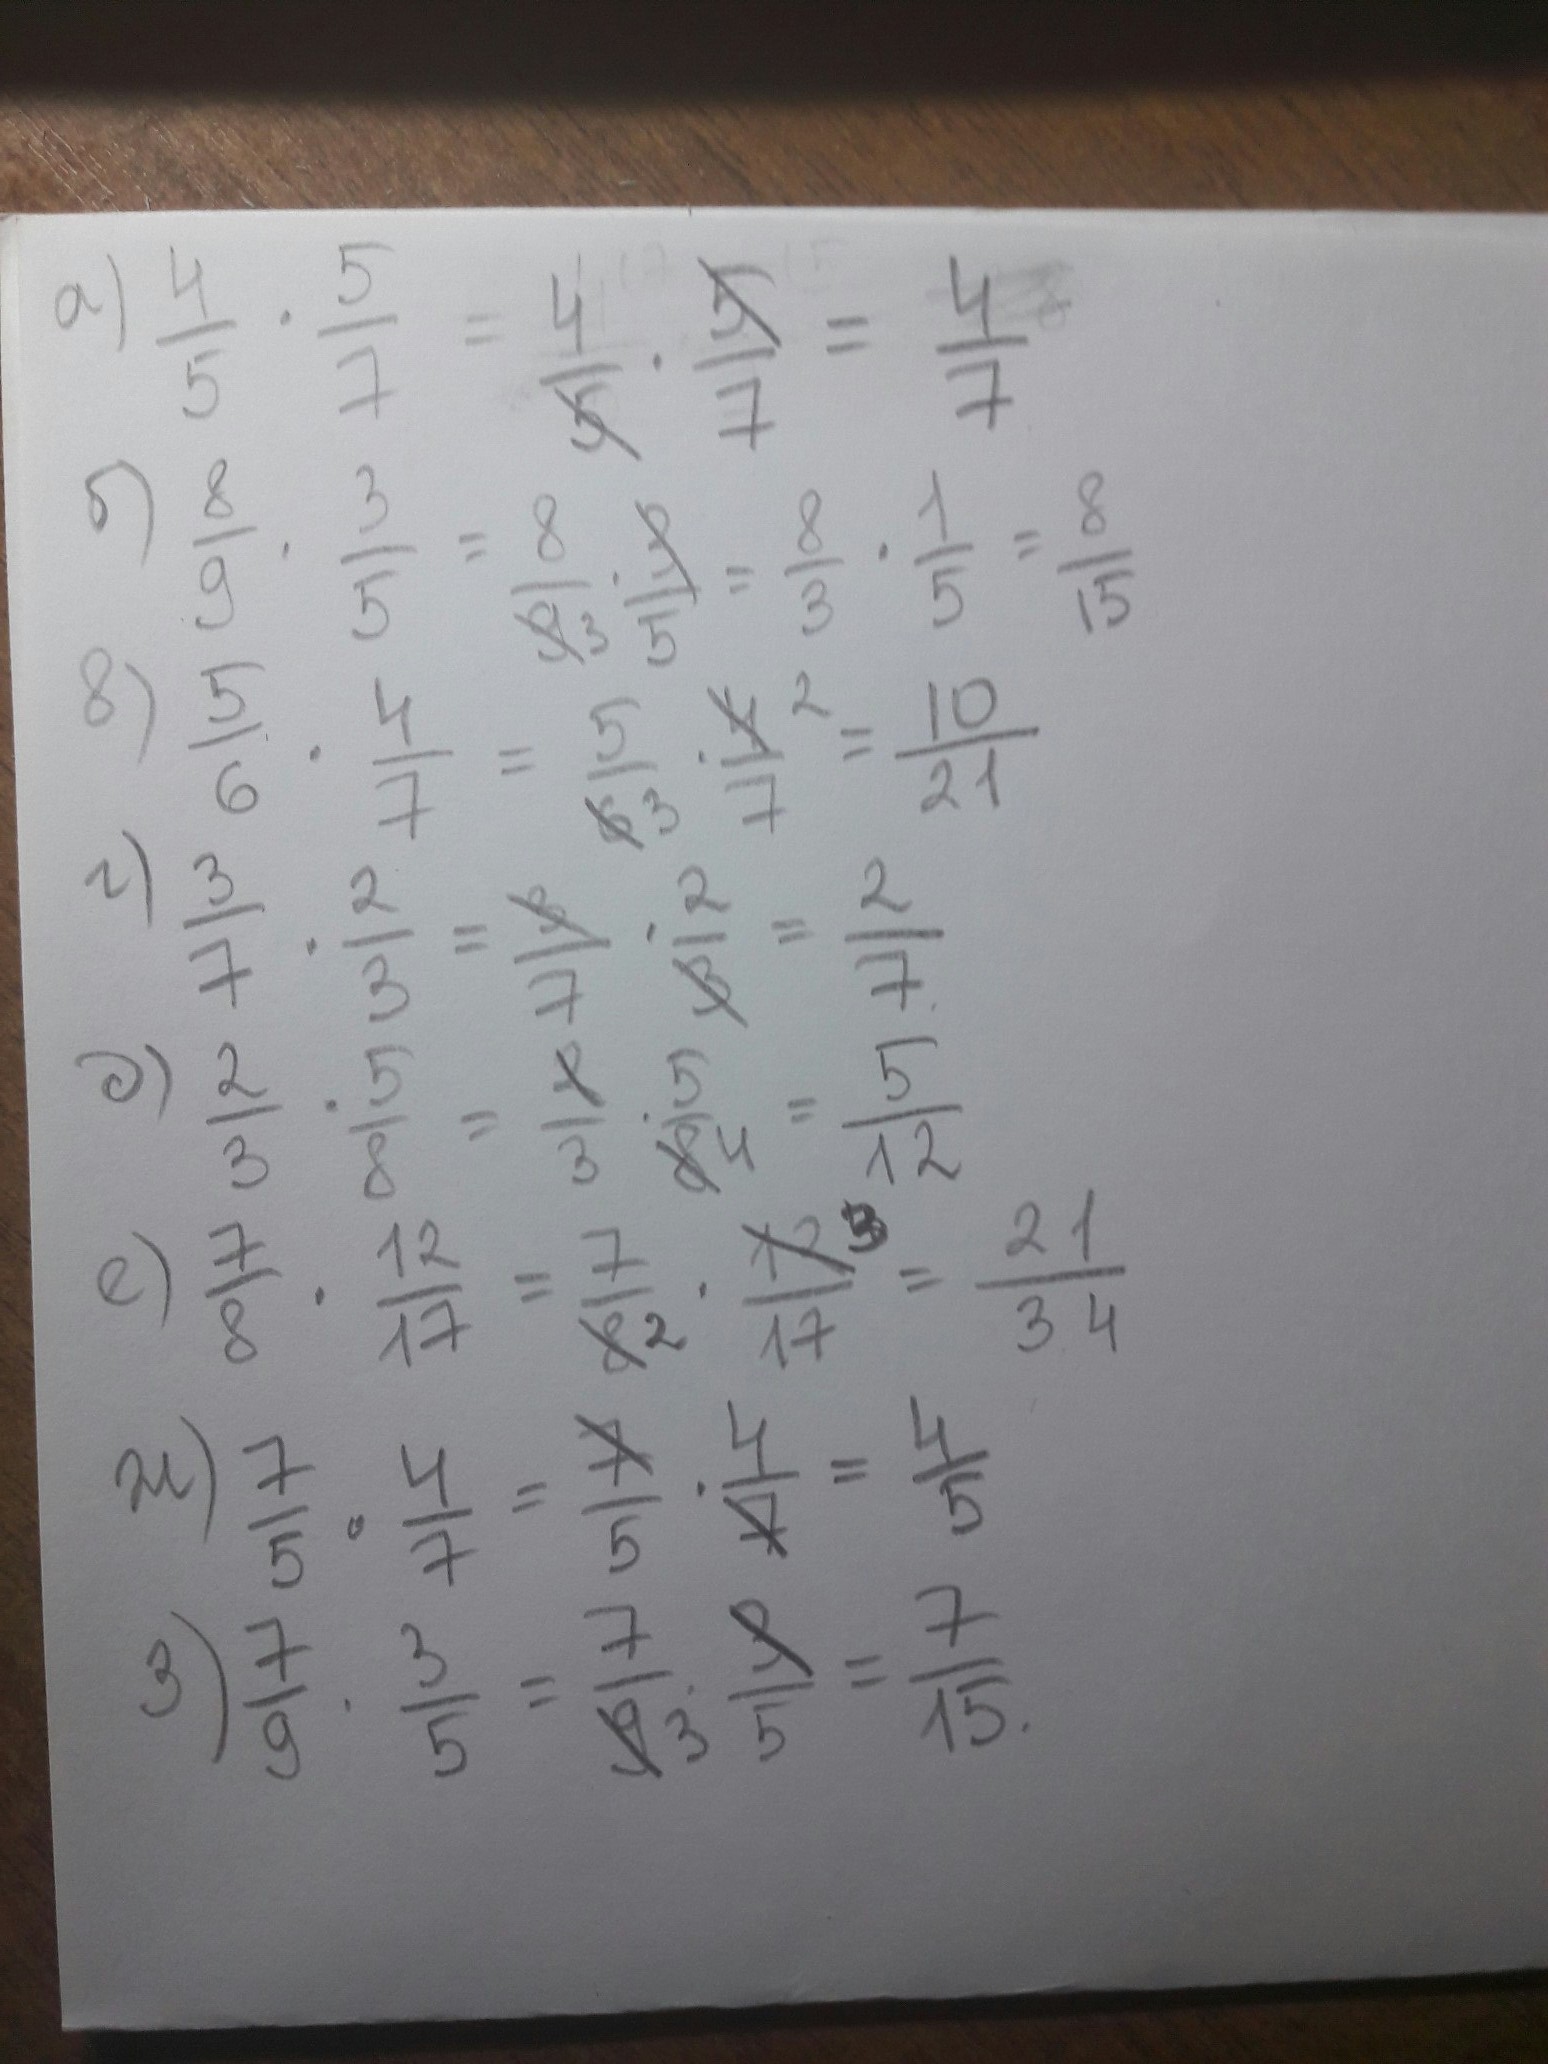 а) 4/5 · 5/7 = 4/5 · 5/7 = 4/7
б) 8/9 · 3/5 = 8/9 3 · 3/5 = 8/3 · 1/5 = 8/15
в) 5/6 · 4/7 = 5/6 3 · 4/7 2 = 10/21
г) 3/7 · 2/3 = 3/7 · 2/3 = 2/7
д) 2/3 · 5/8 = 2/3 · 5/8 4 = 5/12
е) 7/8 · 12/17 = 7/8 2 · 12/17 3 = 21/34
ж) 7/5 · 4/7 = 7/5 · 4/7 = 4/5
з) 7/9 · 3/5 = 7/9 3 · 3/5 = 7/15.